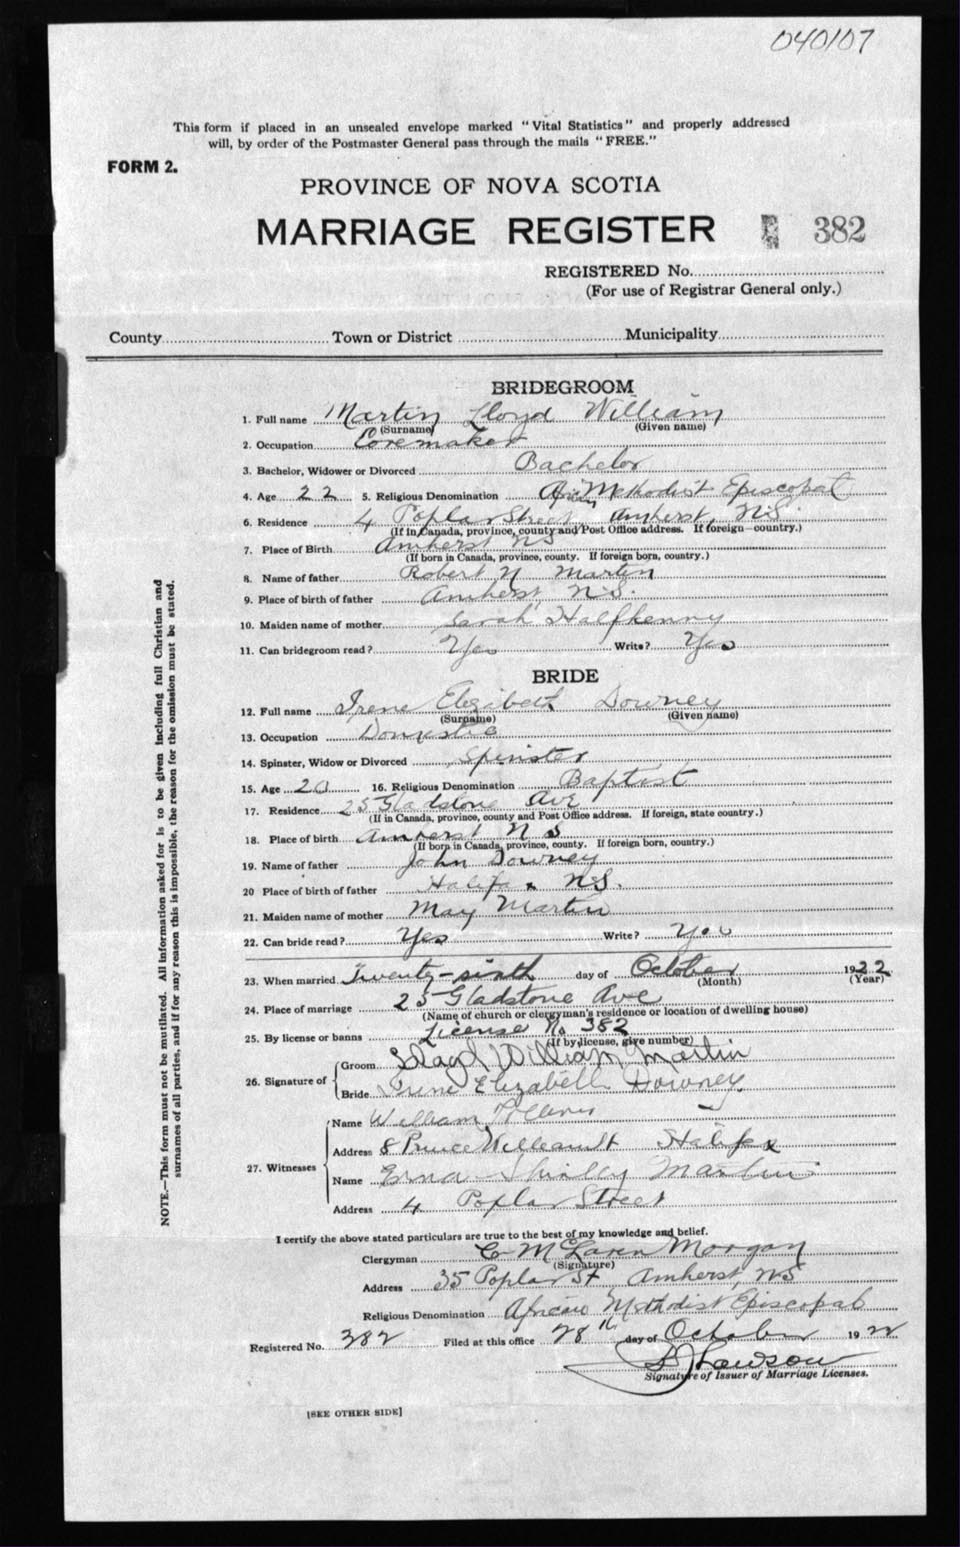 040107
This form if placed in an unsealed envelope marked "Vital Statistics" and properly addressed
will, by order of the Postmaster General pass through the mails "FREE."
FORM 2.
PROVINCE OF NOVA SCOTIA
MARRIAGE REGISTER 382
REGISTERED No.
(For use of Registrar General only.)
County Town or District Municipality
BRIDEGROOM
1. Full name Martin Lloyd William
(Surname) (Given name)
2. Occupation Coremaker
3. Bachelor, Widower or Divorced Bachelor
4. Age 22 5. Religious Denomination Methodist Episcopal
6. Residence 4 Poplar Street, Amherst, N.S.
(If in Canada, province, county and Post Office address. If foreign—country.)
7. Place of Birth Amherst NS
(If born in Canada, province, county. If foreign born, country.)
8. Name of father Robert N Martin
9. Place of birth of father Amherst, N.S.
10. Maiden name of mother Sarah Halfkenny
11. Can bridegroom read? Yes Write? Yes
BRIDE
12. Full name Irene Elezibeth Downey
(Surname) (Given name)
13. Occupation Domestic
14. Spinster, Widow or Divorced Spinster
15. Age 20 16. Religious Denomination Baptist
17. Residence 25 Gladstone Ave
(If in Canada, province, county and Post Office address. If foreign, state country.)
18. Place of birth Amherst N S
(If born in Canada, province, county. If foreign born, country.)
19. Name of father John Downey
20 Place of birth of father Halifax N.S.
21. Maiden name of mother May Martin
22. Can bride read? Yes Write? Yes
23. When married Twenty-sixth day of October 1922
(Month) (Year)
24. Place of marriage 25 Gladstone Ave
(Name of church or clergyman's residence or location of dwelling house)
25. By license or banns License No 382
(If by license, give number)
26. Signature of Groom Lloyd William Martin
Bride Irene Elizabeth Downey
27. Witnesses Name William
Address 8 Halifax
Name Shirley Martin
Address 4 Poplar Street
I certify the above stated particulars are true to the best of my knowledge and belief.
Clergyman C McLaren Morgan
(Signature)
Address 35 Poplar St Amherst, NS
Religious Denomination African Methodist Episcopal
Registered No. 382 Filed at this office 28th day of October 1922
Lawson
Signature of Issuer of Marriage Licenses.
[SEE OTHER SIDE]
NOTE.—This form must not be mutilated. All information asked for is to be given including full Christian and
surnames of all parties, and if for any reason this is impossible, the reason for the omission must be stated.